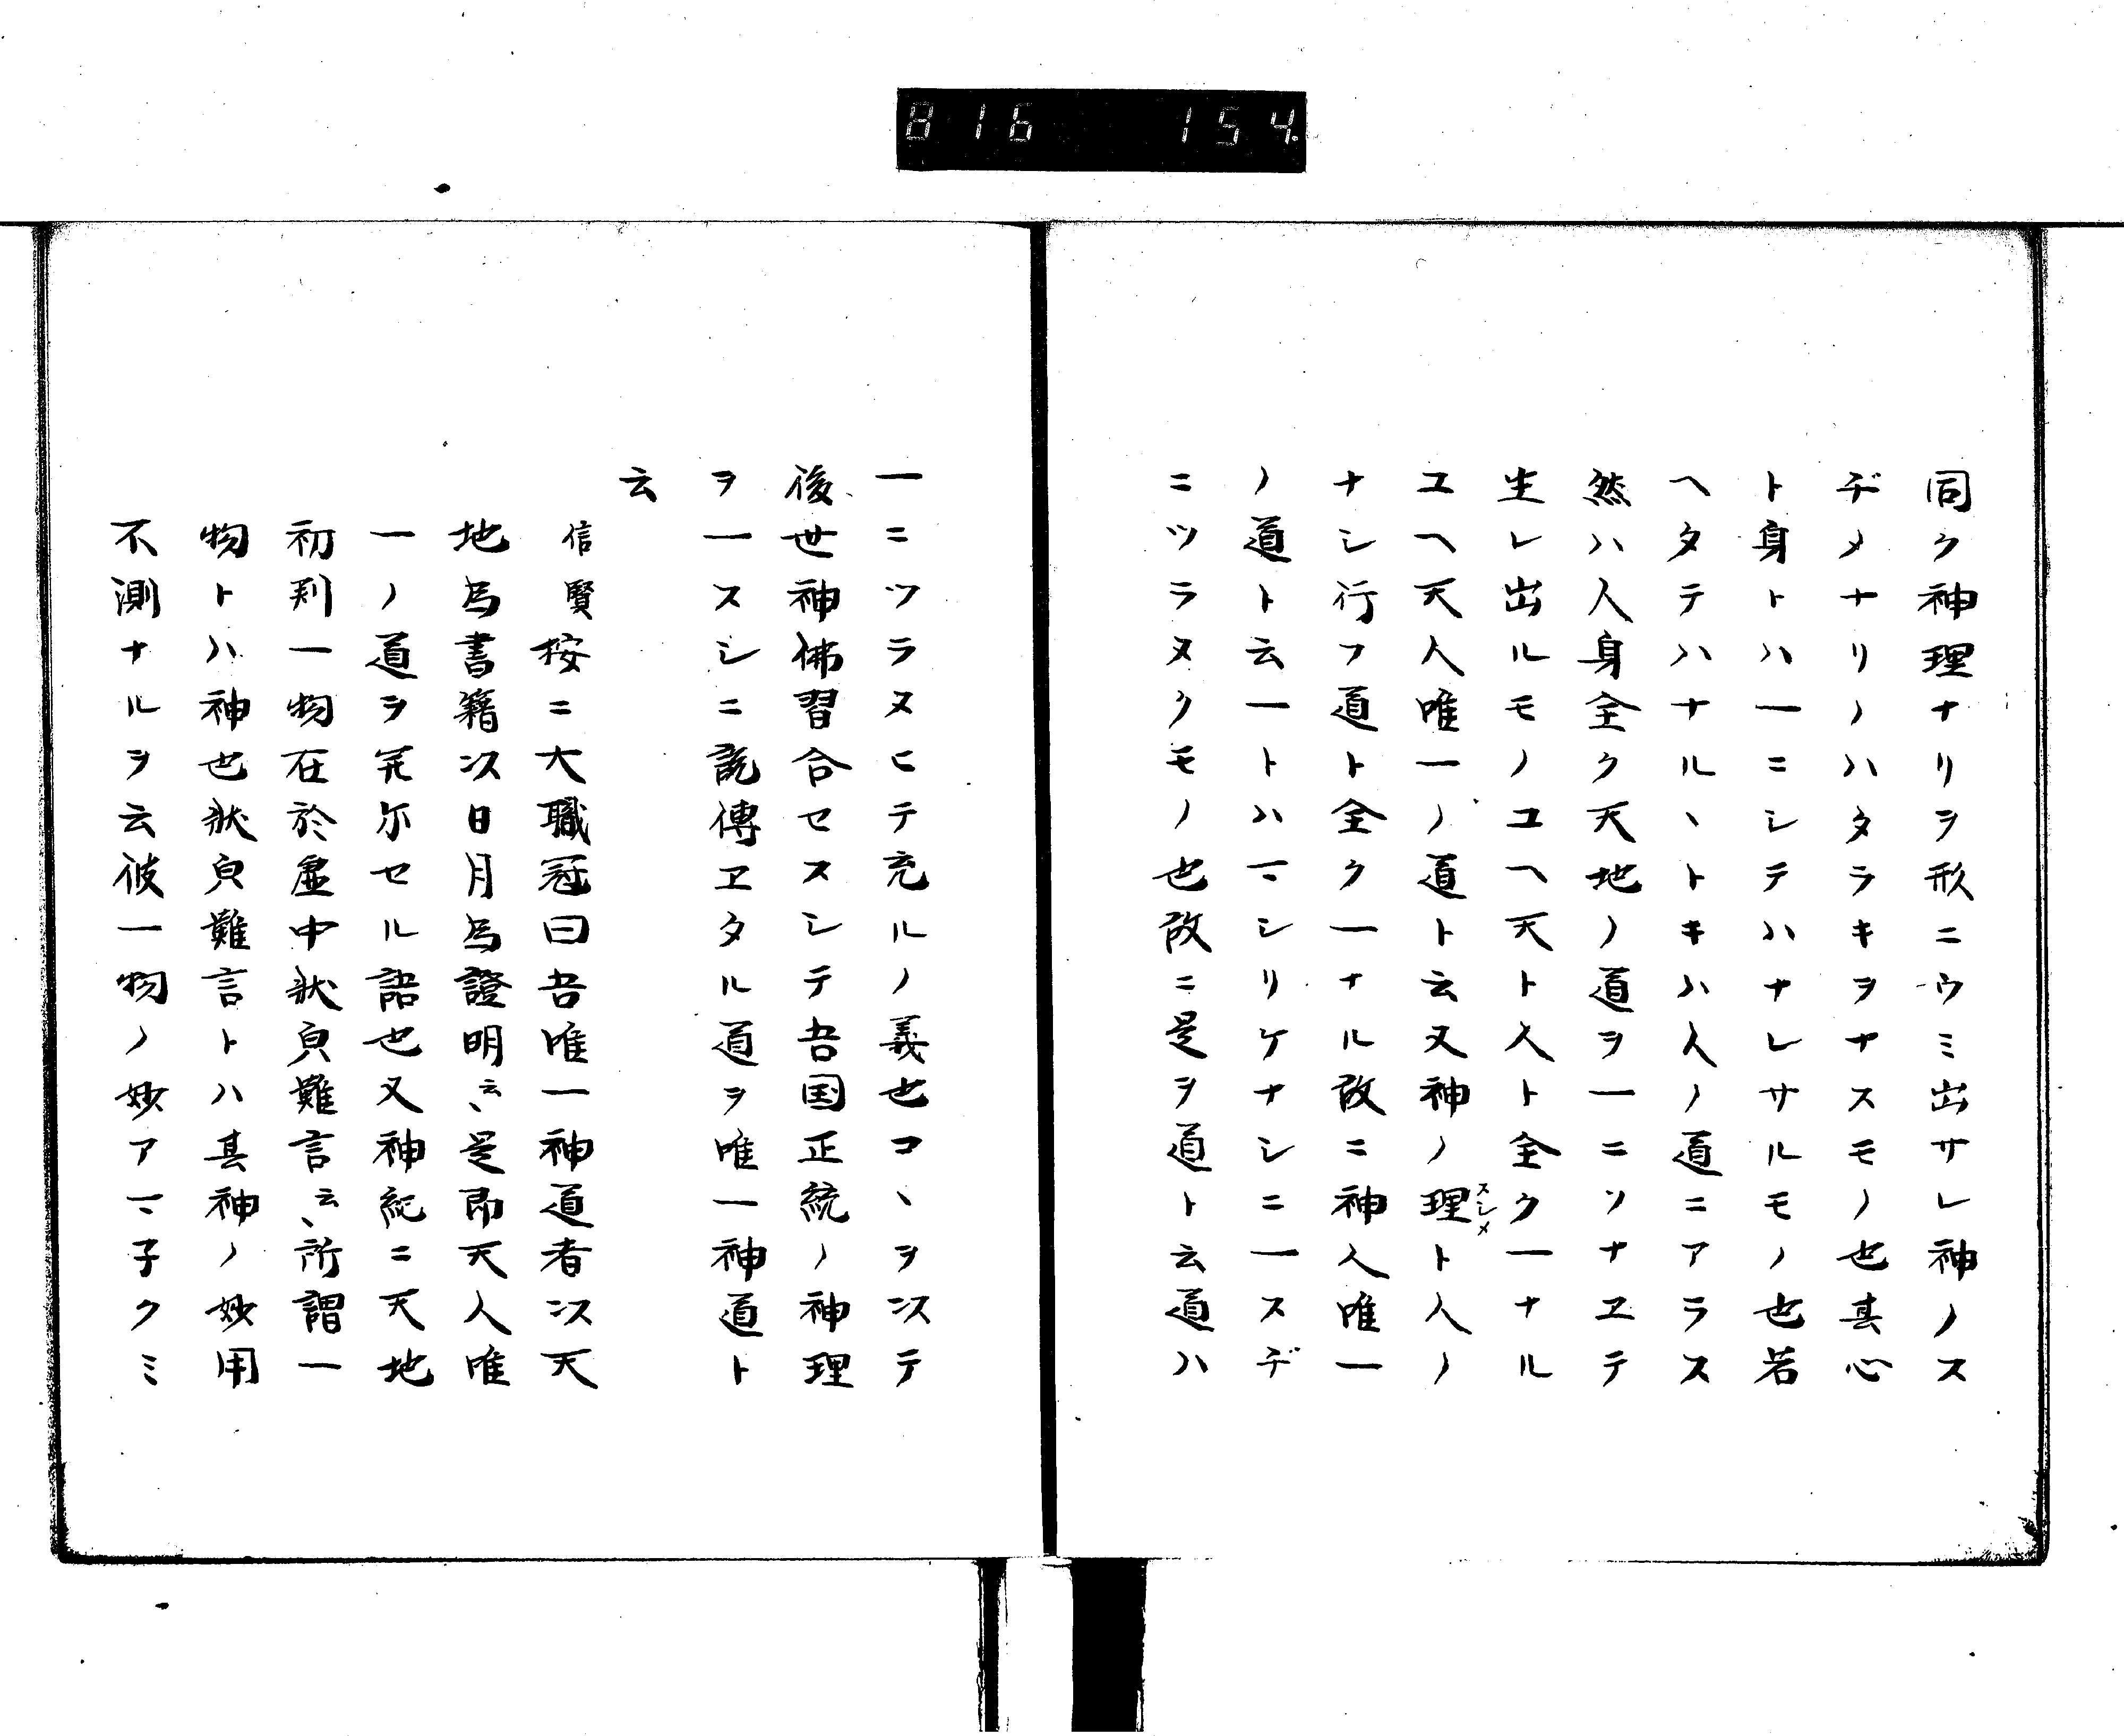 816 154
同ク神理ナリヲ形ニウミ出サレ神ノス
ヂメナリノハタラキヲナスモノ也其心
ト身トハ一ニシテハナレサルモノ也若
ヘタテハナルヽトキハ人ノ道ニアラス
然ハ人身全ク天地ノ道ヲ一ニソナヱテ
生レ出ルモノユヘ天ト人ト全ク一ナル
ユヘ天人唯一ノ道ト云又神ノ理スシメト人ノ
ナシ行フ道ト全ク一ナル故ニ神人唯一
ノ道ト云一トハマシリケナシニ一スヂ
ニツラヌクモノ也故ニ是ヲ道ト云道ハ
一ニツラヌヒテ充ルノ義也コヽヲ以テ
後世神佛習合セスシテ吾国正統ノ神理
ヲ一スシニ説傳ヱタル道ヲ唯一神道ト
云
信賢按ニ大職冠曰吾唯一神道者以天
地為書籍以日月為證明云〻是即天人唯
一ノ道ヲ発尓セル語也又神紀ニ天地
初判一物在於虚中状貌難言云〻所謂一
物トハ神也状貌難言トハ其神ノ妙用
不測ナルヲ云彼一物ノ妙アマ子クミ